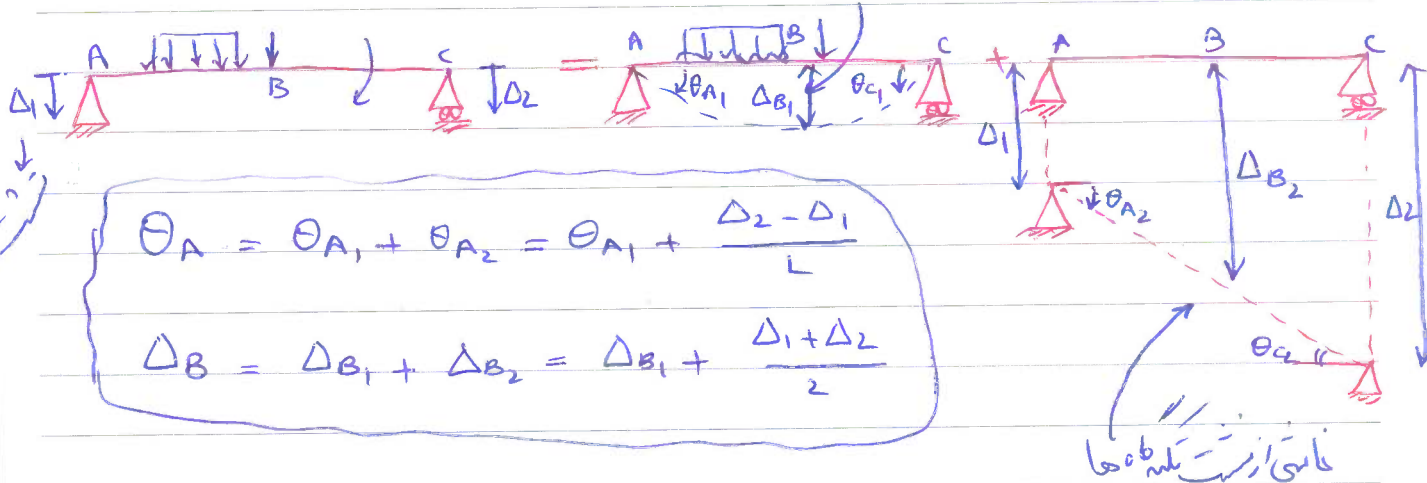 A B C Δ1 Δ2
=
A B C θA1 ΔB1 θC1
+
A B C Δ1 θA2 ΔB2 Δ2 θC2
θA = θA1 + θA2 = θA1 + (Δ2 - Δ1) / L
ΔB = ΔB1 + ΔB2 = ΔB1 + (Δ1 + Δ2) / 2
ناشی از نشست تکیه گاه ها